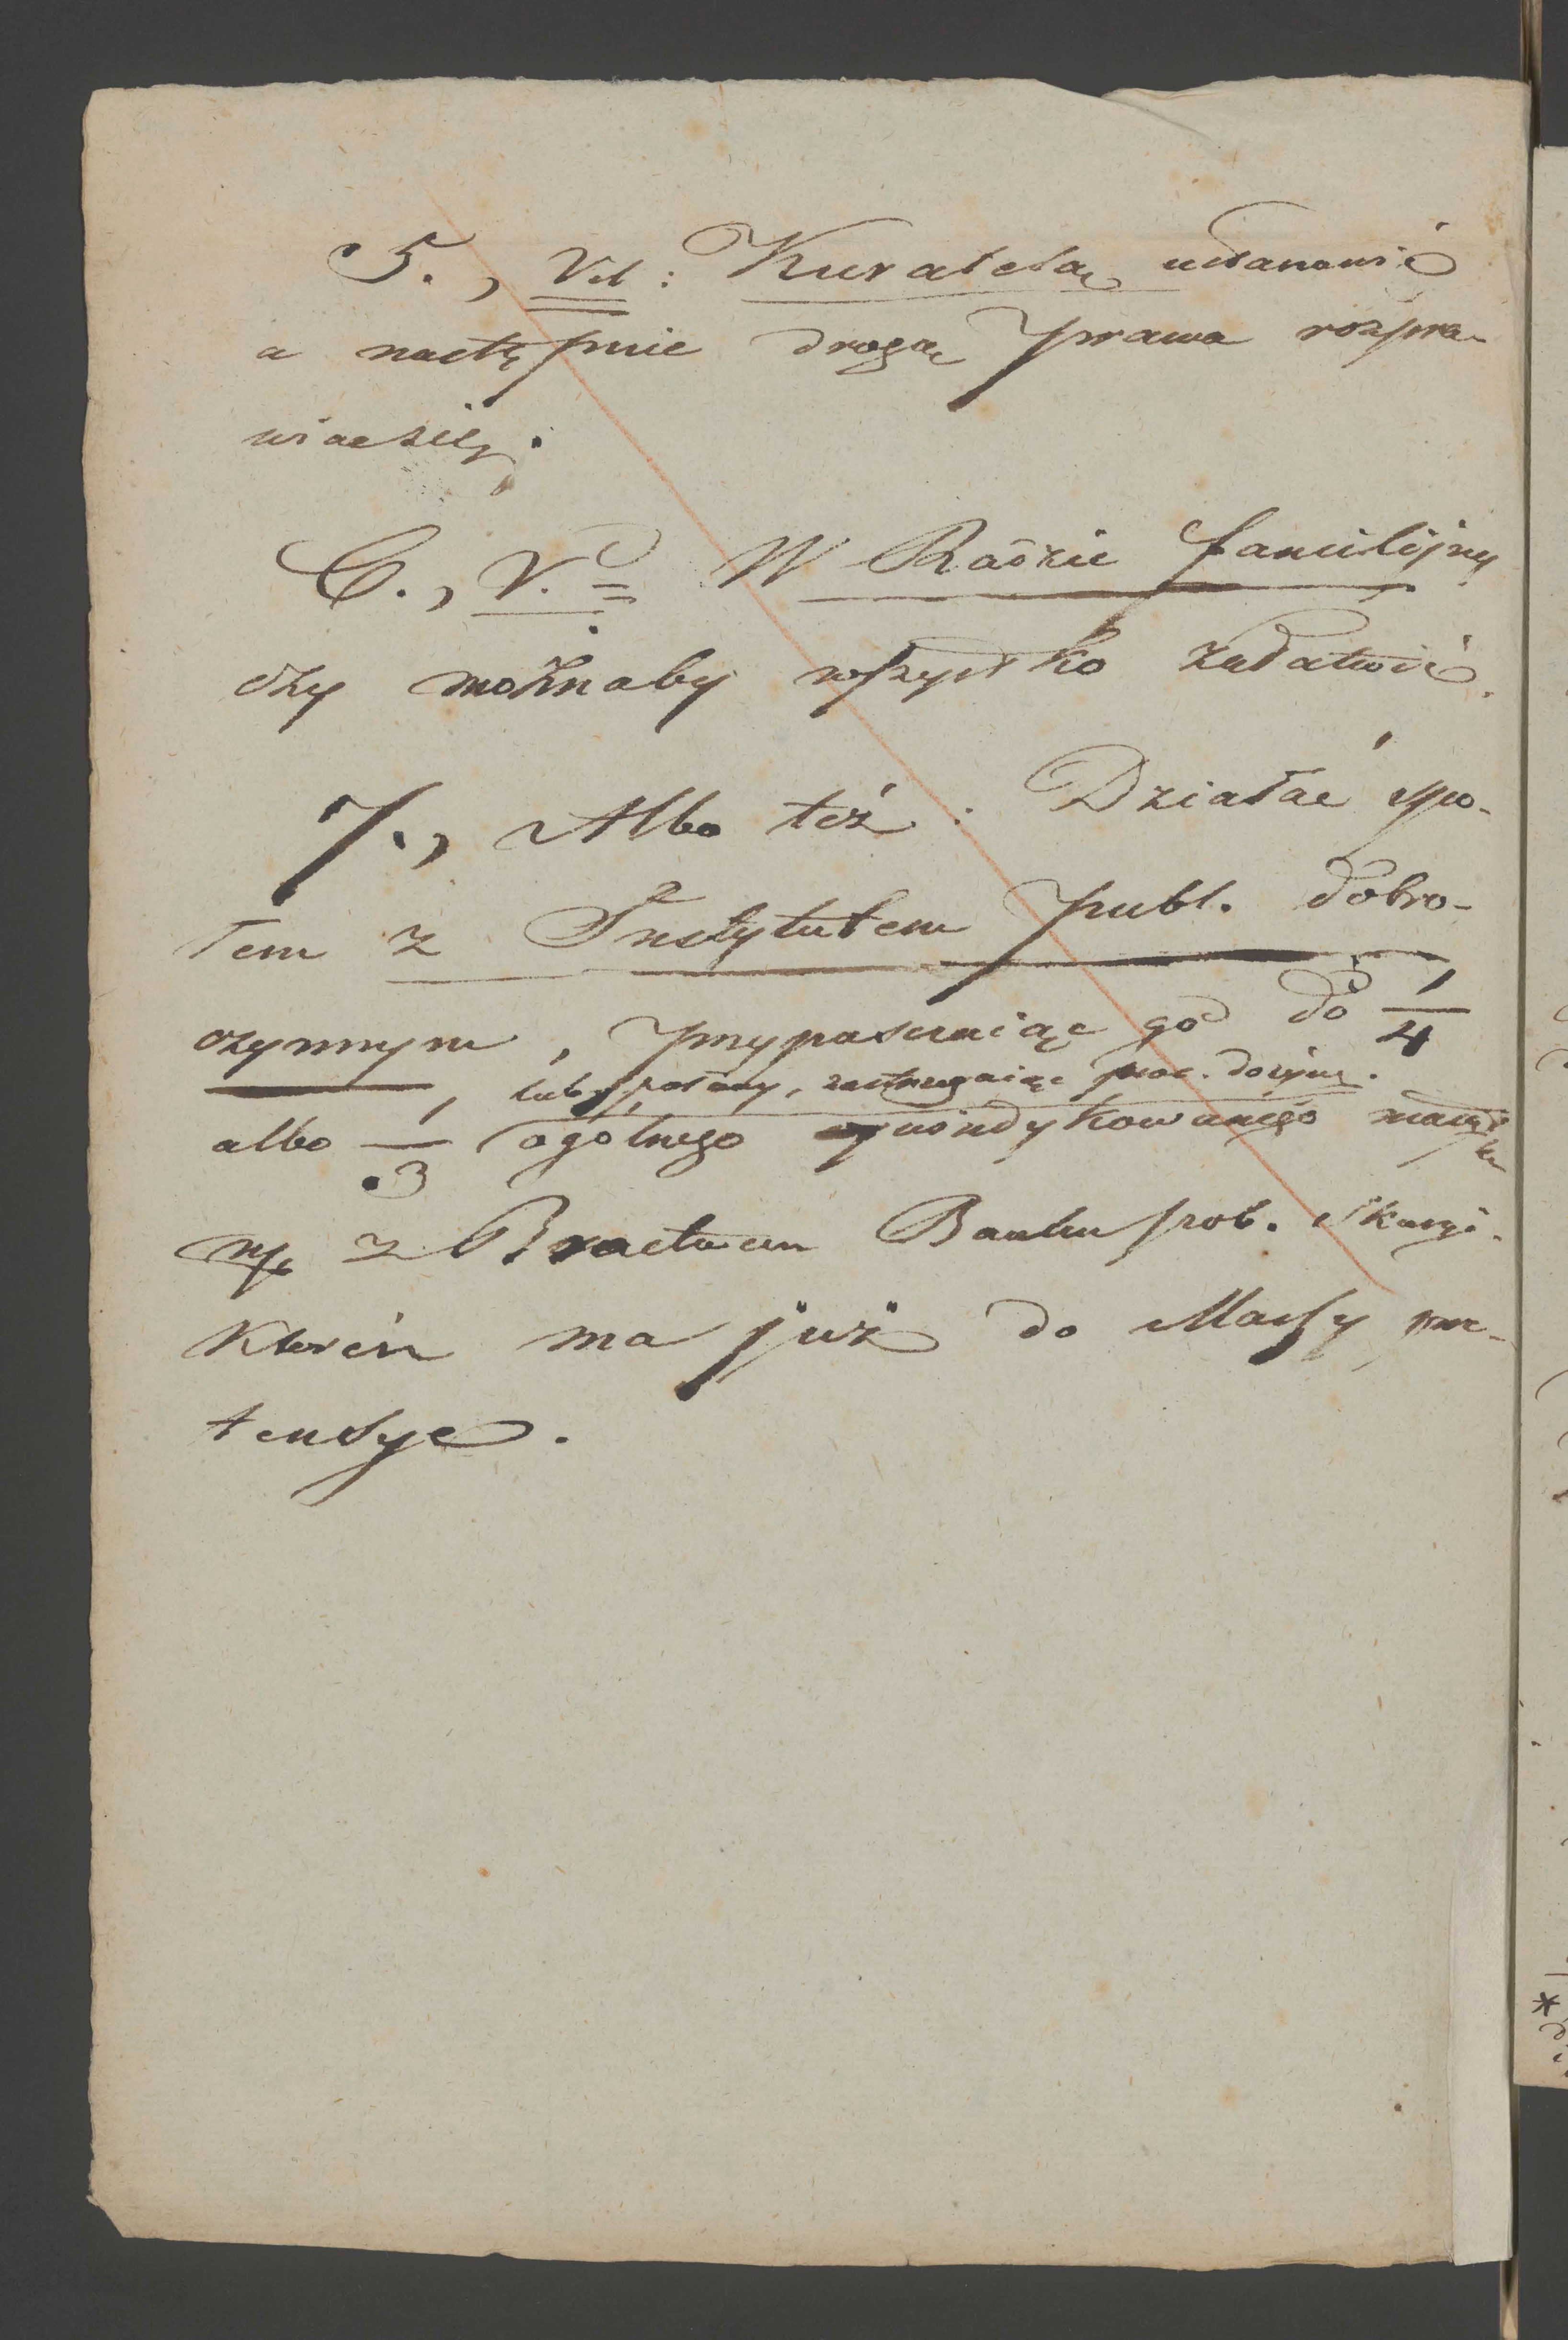 5., Vel: Kuratelą ustanowić
a nastę pnie drogą prawa rozpra-
wiać się.
6., V. = W Radzie familijnej
czy możnaby wszystko załatwić.
7., Albo też: Działać spo-
łem z Instytutem publ. dobro-
czynnym, przypuszczając go do 1/4
lub połowy, zastrzegając
albo 1/3 ogólnego wywindykowanego mająt
ku
np z Bractwem Banku pob. Skargi.
które ma już do Massy pre-
tensye.